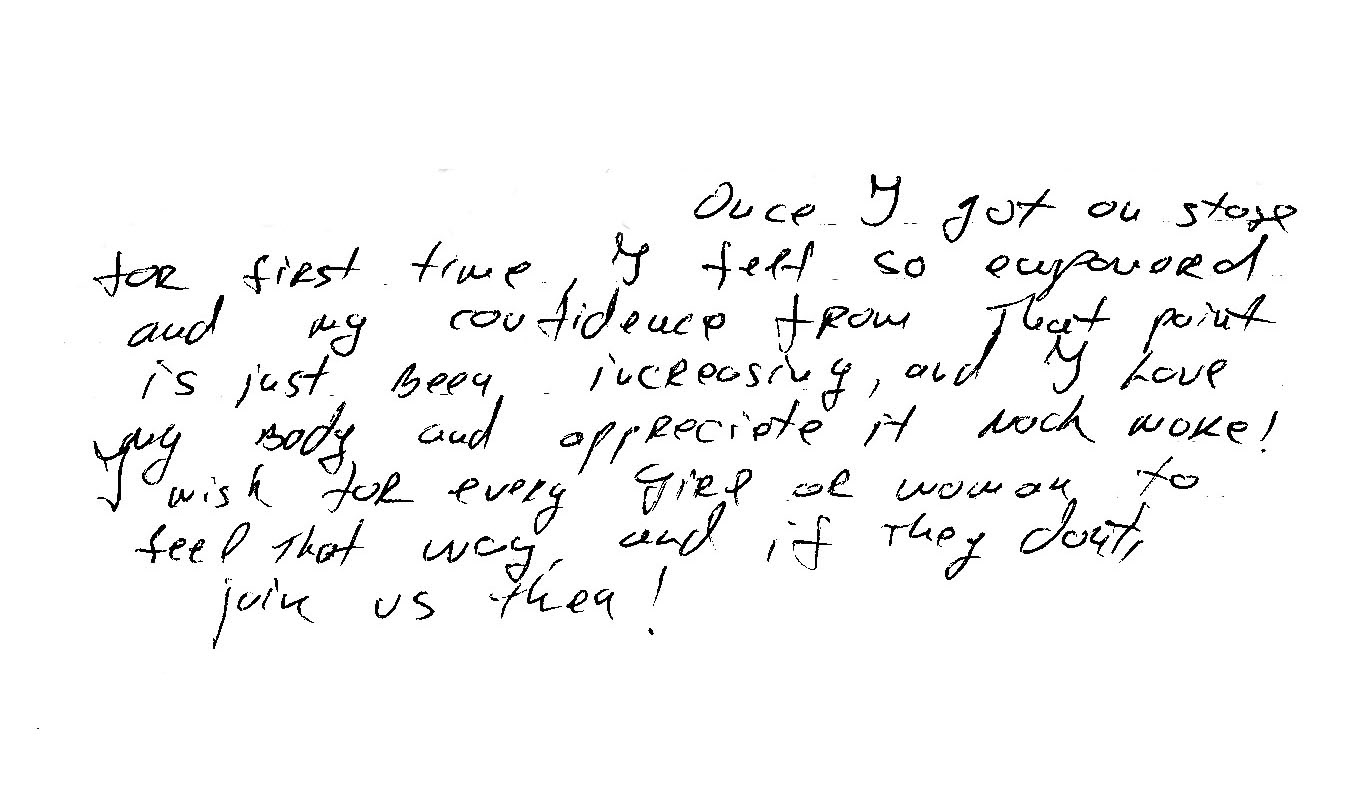 Once I got on stage
for first time, I felt so empowered
and my confidence from that point
is just been increasing, and I love
my body and appreciate it much more!
I wish for every girl or woman to
feel that way, and if they dont,
join us then!